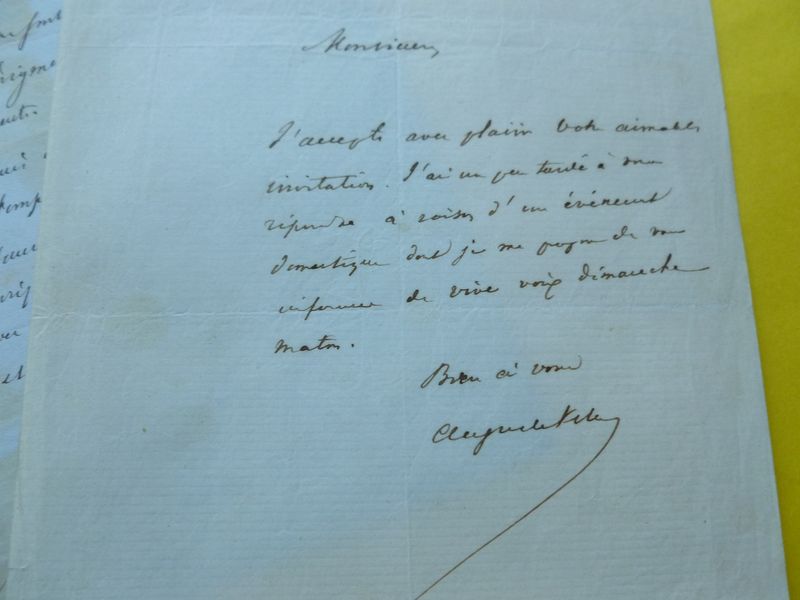 Monsieur,
J'accepte avec plaisir votre aimable
invitation. J'ai un peu tardé à vous
répondre à raison d'un événement
domestique dont je me propose de vous
informer de vive voix dimanche
matin.
Bien à vous
Auguste